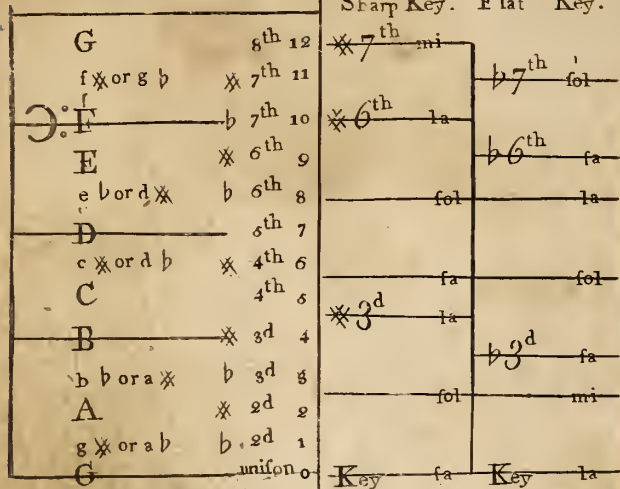 Sharp Key. Flat Key.
G 8th 12 ♯ 7th mi
f♯ or g♭ ♯ 7th 11 ♭ 7th ſol
F ♭ 7th 10 ♯ 6th la
E ♯ 6th 9 ♭ 6th fa
e♭ or d♯ ♭ 6th 8 ſol la
D 5th 7
c♯ or d♭ ♯ 4th 6 fa ſol
C 4th 5 ♯ 3d la
B ♯ 3d 4 ♭ 3d fa
b♭ or a♯ ♭ 3d 3
A ♯ 2d 2 ſol mi
g♯ or a♭ ♭ 2d 1
G uniſon 0 Key fa Key la